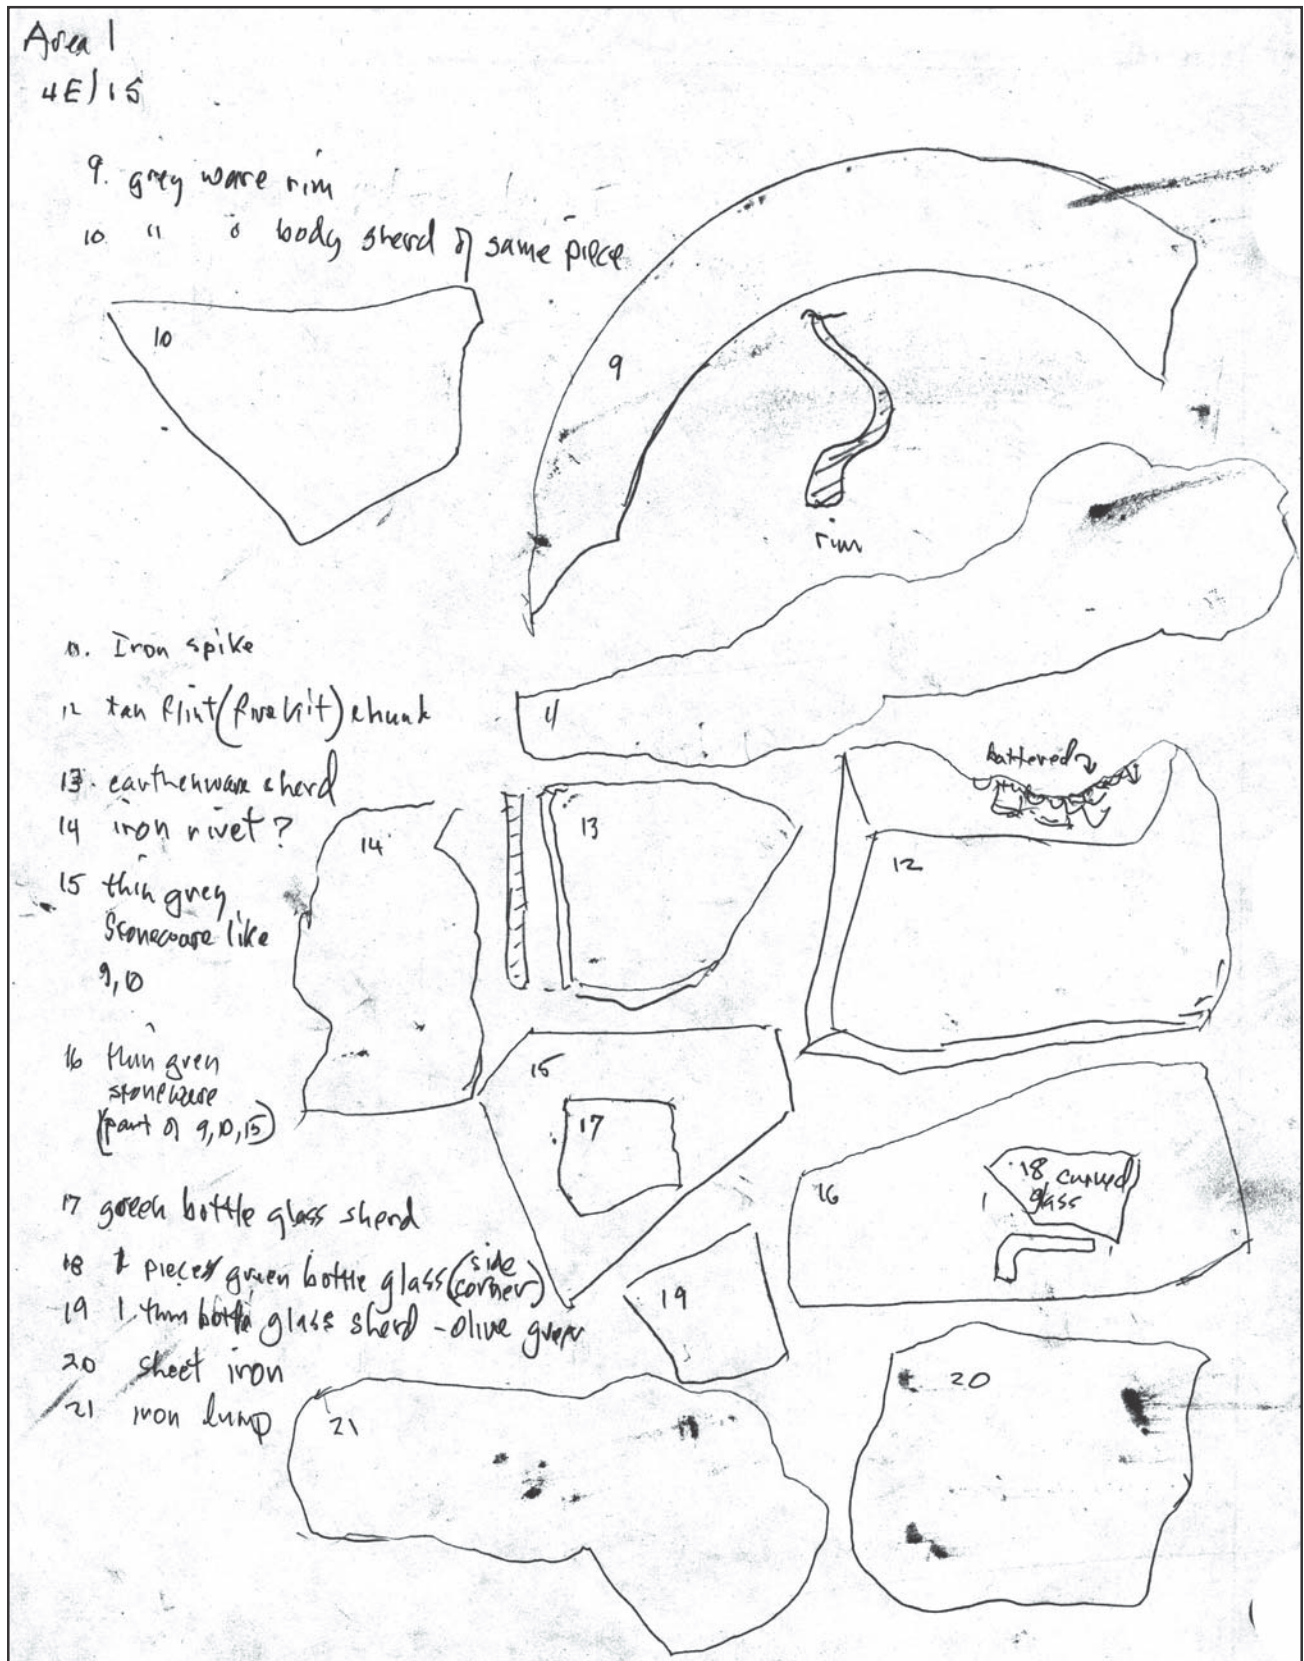 Area 1
4E/1S
9. grey ware rim
10 " " body sherd of same piece
10
9
rim
11. Iron spike
12 tan flint (fire kit) chunk
13. earthenware sherd
14 iron rivet?
15 thin grey
stoneware like
9,10
16 thin grey
stoneware
(part of 9,10,15)
17 green bottle glass sherd
18 piece green bottle glass (side
corner)
19 1 thin bottle glass sherd - olive green
20 sheet iron
21 iron lump
11
battered
12
13
14
15
17
16
18 curved
glass
19
20
21